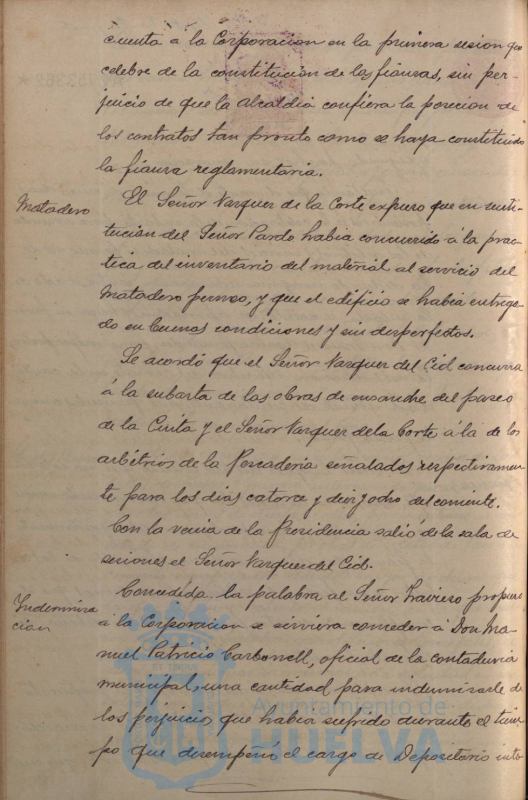 cuenta á la Corporacion en la primera sesion que
celebre de la constitucion de las fianzas, sin per-
juicio de que la alcaldia confiera la posecion de
los contratos tan pronto como se haya constituido
la fianza reglamentaria.
Matadero
El Señor Vazquez de la Corte expuso que en susti-
tucion del Señor Pardo habia concurrido á la prac
tica del inventario del material al servicio del
Matadero permeo, y que el edificio se habia entrega-
do en buenas condiciones y sin desperfectos.
Se acordó que el Señor Vazquez del Cid concurra
á la subasta de las obras de ensanche del paseo
de la Cinta y el Señor Vazquez de la Corte á la de los
arbitrios de la Pescaderia señalados respectivamen-
te para los dias catorce y diez y ocho del corriente.
Con la venia de la Presidencia salió de la sala de
sesiones el Señor Vazquez del Cid.
Indemniza
cion
Concedida la palabra al Señor Traviezo propuso
á la Corporacion se sirviera conceder á Don Ma-
nuel Patricio Carbonell, oficial de la contaduria
municipal, una cantidad para indemnisarle de
los perjuicio, que habia sufrido durante el tiem
po que desempeñó el cargo de Depositario inte
Ayuntamiento de
HUELVA